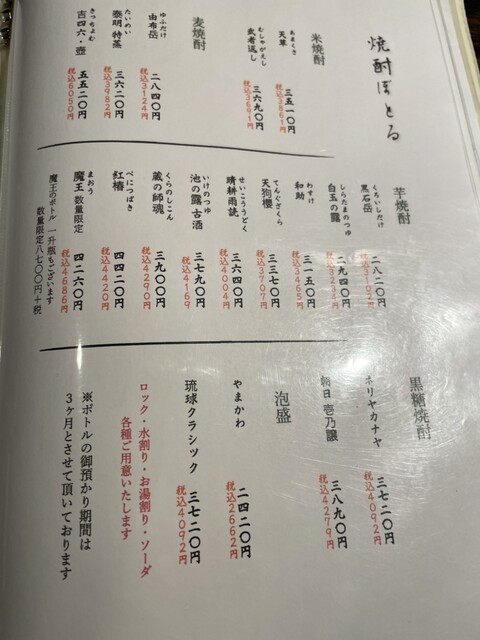 焼酎ぼとる
米焼酎
あまくさ
天草 三五一〇円
税込3861円
むしゃがえし
武者返し 三六九〇円
税込3691円
麦焼酎
ゆふだけ
由布岳 二八四〇円
税込3124円
たいめい
泰明 特蒸 三六二〇円
税込3982円
きっちょむ
吉四六・壺 五五二〇円
税込6050円
芋焼酎
くろいしだけ
黒石岳 二八二〇円
税込3102円
しらたまのつゆ
白玉の露 二九四〇円
税込3234円
わすけ
和助 三一五〇円
税込3465円
てんぐざくら
天狗櫻 三三七〇円
税込3707円
せいこううどく
晴耕雨読 三六四〇円
税込4004円
いけのつゆ
池の露 古酒 三七九〇円
税込4169
くらのしこん
蔵の師魂 三九〇〇円
税込4290円
べにつばき
紅椿 四四二〇円
税込4420円
まおう
魔王 数量限定 四二六〇円
税込4686円
魔王のボトル 一升瓶もございます
数量限定八七〇〇円+税
黒糖焼酎
ネリヤカナヤ 三七二〇円
税込4092円
朝日 壱乃醸 三八九〇円
税込4279円
泡盛
やまかわ 二四二〇円
税込2662円
琉球クラシック 三七二〇円
税込4092円
ロック・水割り・お湯割り・ソーダ
各種ご用意いたします
※ボトルの御預かり期間は
3ヶ月とさせて頂いております